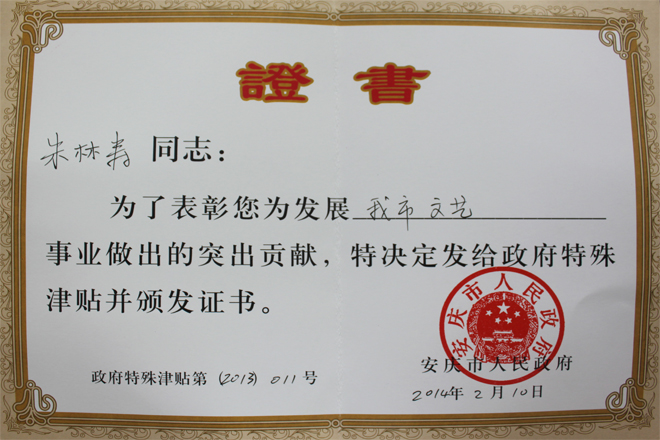 證書
朱林寿 同志：
为了表彰您为发展 我市文艺
事业做出的突出贡献，特决定发给政府特殊
津贴并颁发证书。
安庆市人民政府
政府特殊津贴第 (2013) 011 号
安庆市人民政府
2014年2月10日